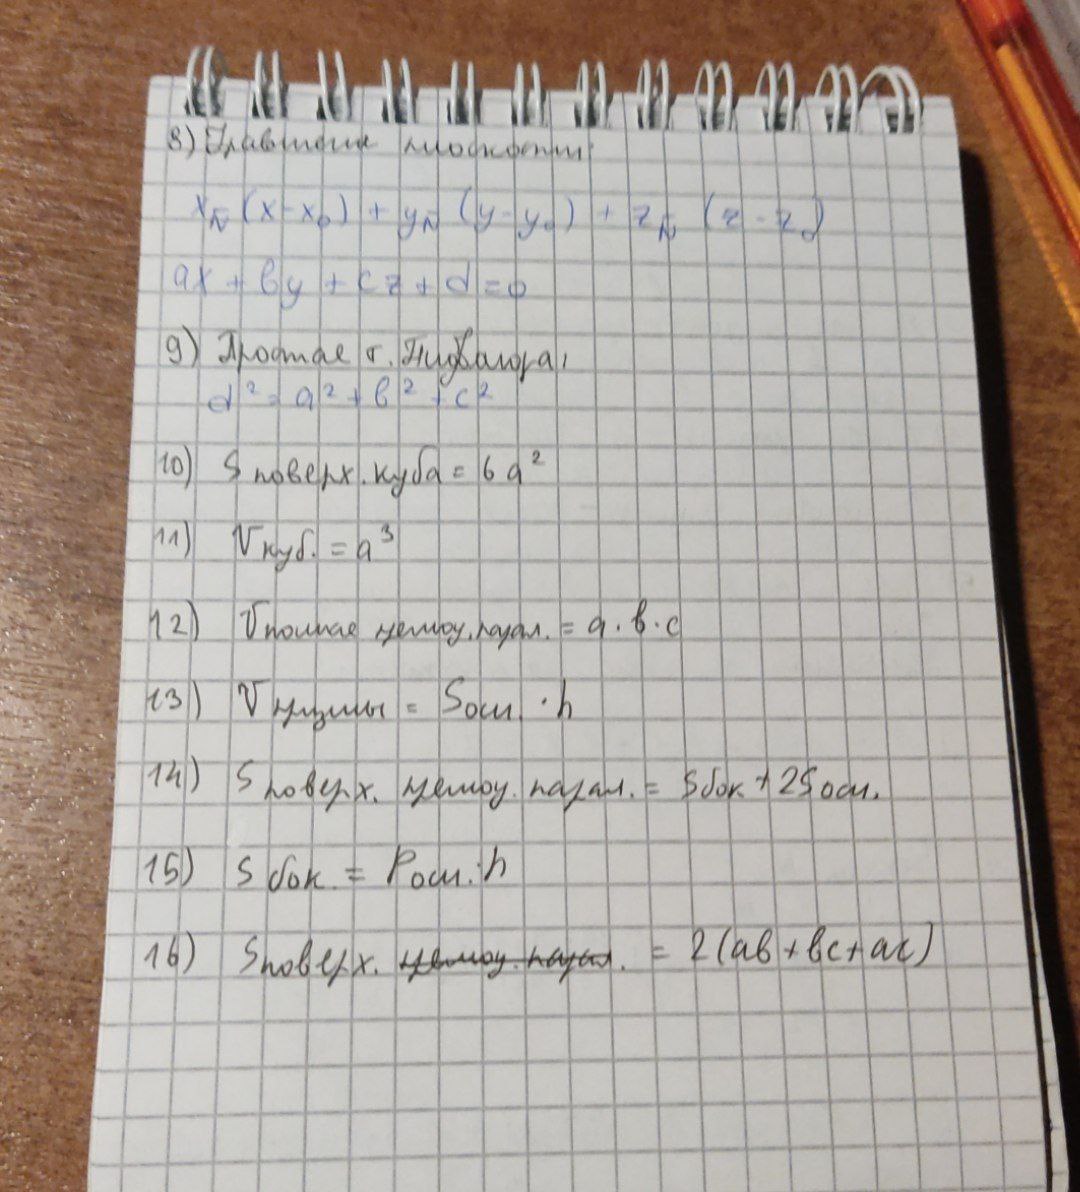 8) Уравнение плоскости:
x_N⃗ (x-x₀) + y_N⃗ (y-y₀) + z_N⃗ (z-z₀)
ax + by + cz + d = 0
9) т. Пифагора,
d² = a² + b² + c²
10) S поверх. куба = 6a²
11) Vкуб. = a³
12) V прямоуг. парал. = a · b · c
13) V призмы = Sосн. · h
14) S поверх. прямоуг. парал. = Sбок + 2Sосн.
15) S бок. = Pосн. · h
16) Sповерх. прямоуг. парал. = 2(ab + bc + ac)